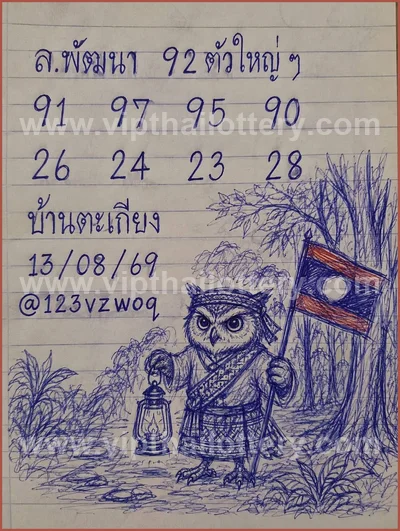 ล.พัฒนา 92 ตัวใหญ่ๆ
91 97 95 90
www.vipthailottery.com
26 24 23 28
บ้านตะเกียง
13/08/69
www.vipthailottery.com
@123vzwoq
www.vipthailottery.com